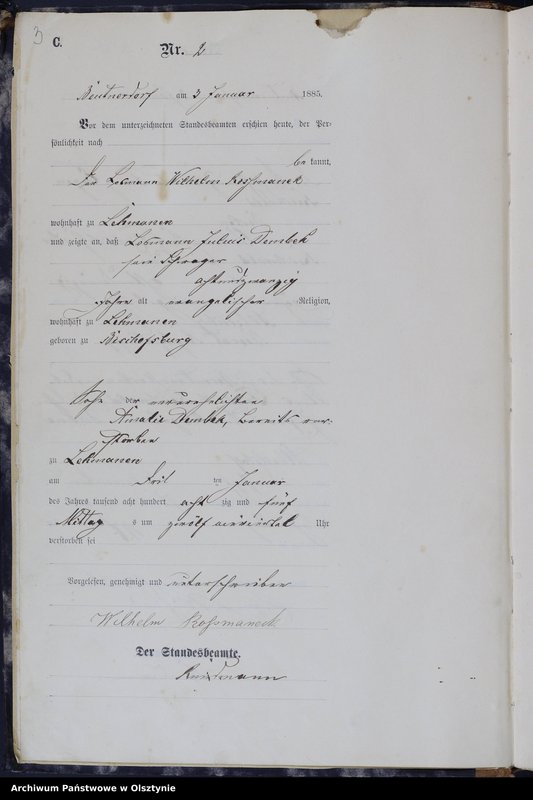 3
C.
Nr. 2
Beutnerdorf am 3 Januar 1885.
Vor dem unterzeichneten Standesbeamten erschien heute, der Per-
sönlichkeit nach
be kannt,
Der Losmann Wilhelm Rossmanek
wohnhaft zu Lehmanen
und zeigte an, daß Losmann Julius Dembek
sein Schwager
achtundzwanzig
Jahre alt evangelischer Religion,
wohnhaft zu Lehmanen
geboren zu Bischofsburg
Sohn der unverehelichten
Amalie Dembek, bereits ver-
storben
zu Lehmanen
am Drit ten Januar
des Jahres tausend acht hundert acht zig und fünf
Mittag s um zwölf Uhr
verstorben sei
Vorgelesen, genehmigt und unterschrieben
Wilhelm Rossmaneck
Der Standesbeamte.
Archiwum Państwowe w Olsztynie